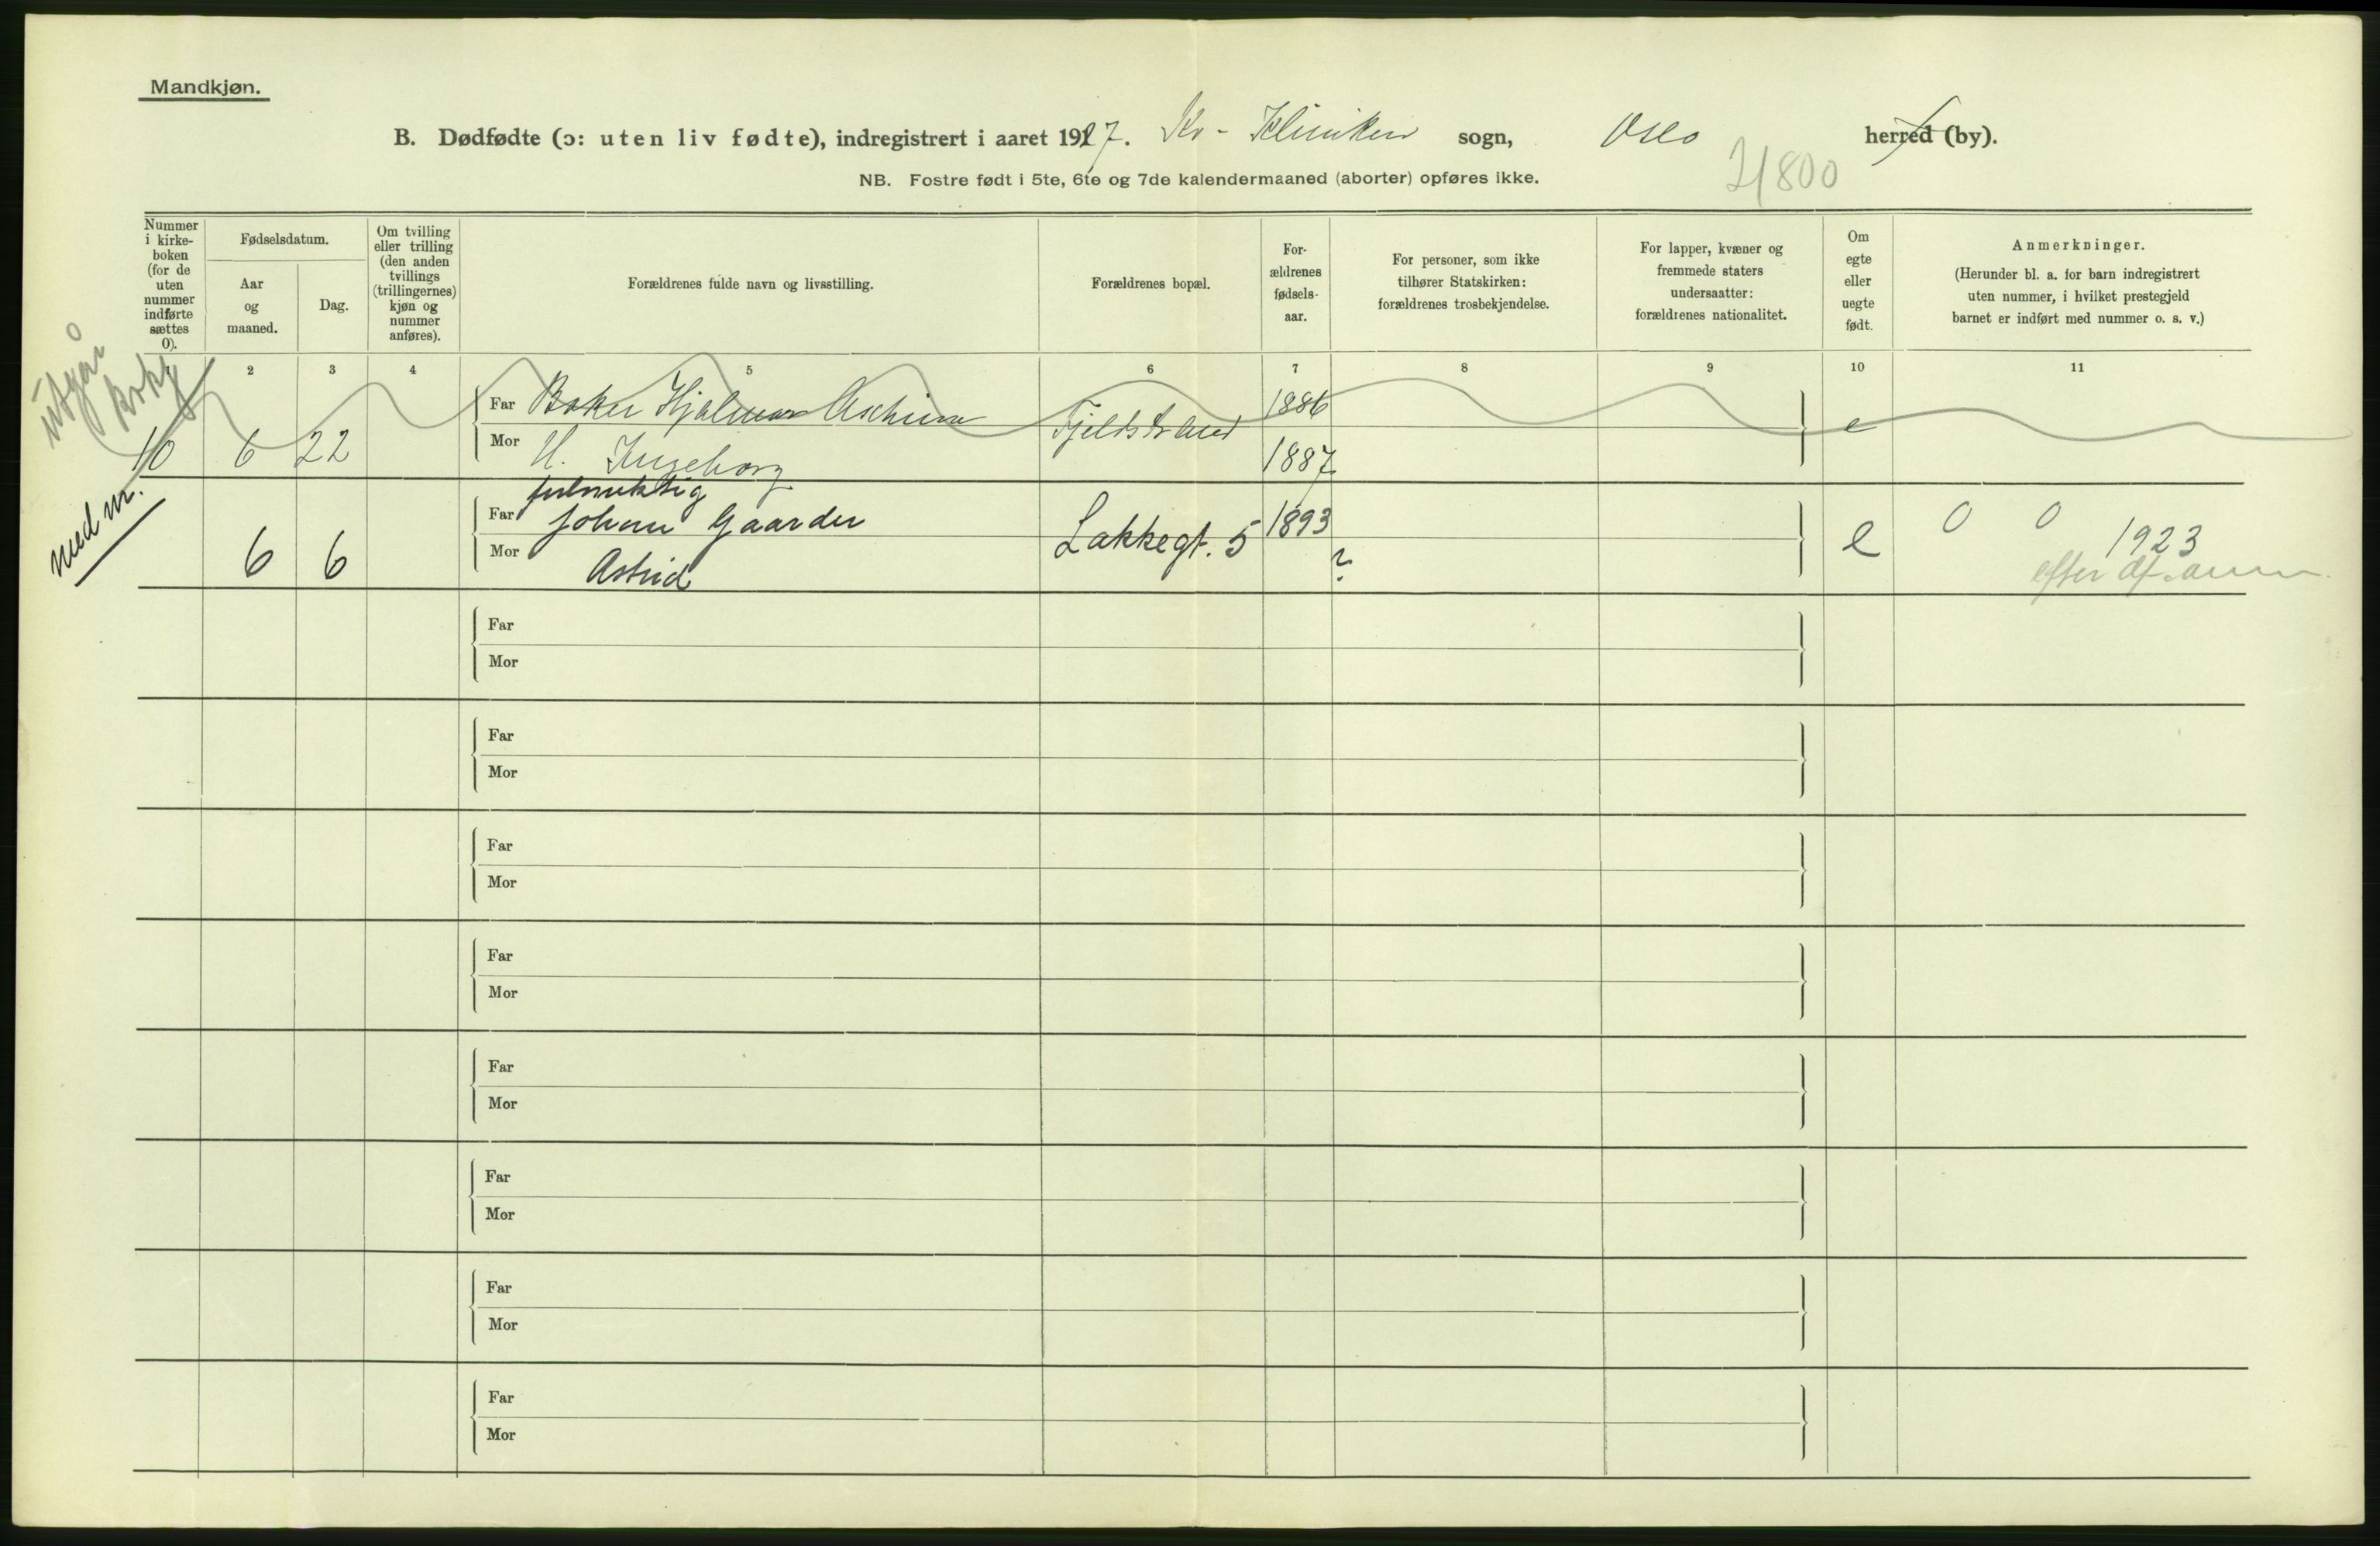 Mandkjøn.
B. Dødfødte (ɔ: uten liv fødte), indregistrert i aaret 1927. Kv-Kliniken sogn, Oslo herred (by).
NB. Fostre født i 5te, 6te og 7de kalendermaaned (aborter) opføres ikke.
21800
Nummer
i kirke-
boken
(for de
uten
nummer
indførte
sættes
0).
Fødselsdatum.
Aar
og
maaned.
Dag.
Om tvilling
eller trilling
(den anden
tvillings
(trillingernes)
kjøn og
nummer
anføres).
Forældrenes fulde navn og livsstilling.
Forældrenes bopæl.
For-
ældrenes
fødsels-
aar.
For personer, som ikke
tilhører Statskirken:
forældrenes trosbekjendelse.
For lapper, kvæner og
fremmede staters
undersaatter:
forældrenes nationalitet.
Om
egte
eller
uegte
født.
Anmerkninger.
(Herunder bl. a. for barn indregistrert
uten nummer, i hvilket prestegjeld
barnet er indført med nummer o. s. v.)
1 2 3 4 5 6 7 8 9 10 11
utgår
10 6 22
Far Baker Hjalmar Aschim Fjeldstrand 1886 e
Mor H. Ingeborg 1887
med nr.
fuldmektig
6 6 Far Johan Gaarder Lakkegt. 5 1893 e 0 0 1923
Mor Astrid ?
efter
Far
Mor
Far
Mor
Far
Mor
Far
Mor
Far
Mor
Far
Mor
Far
Mor
Far
Mor